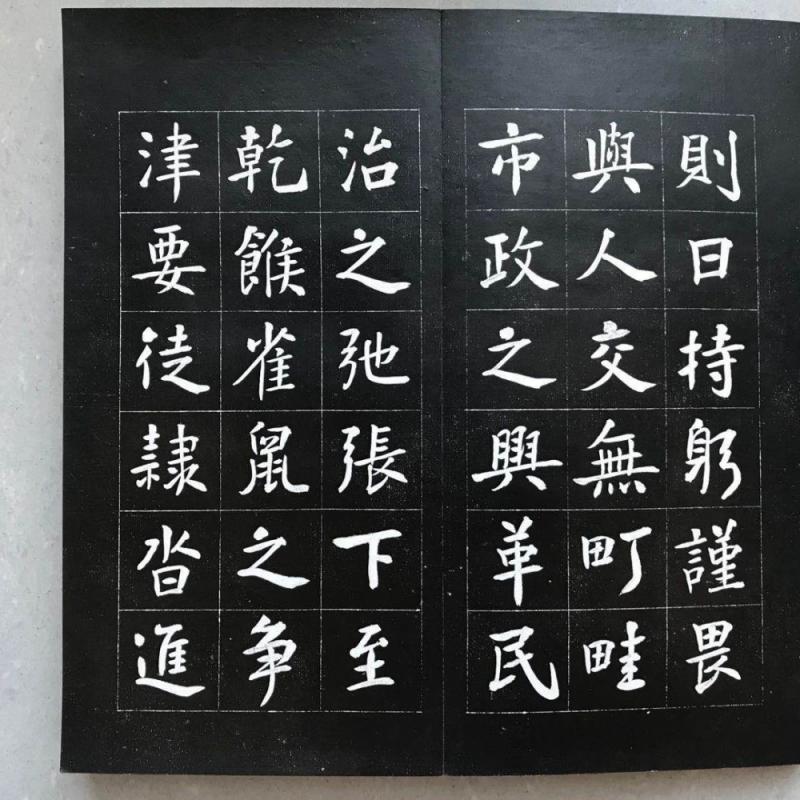 則日持躬謹畏
與人交無町畦
市政之興革民
治之弛張下至
乾餱雀鼠之争
津要徒隸沓進